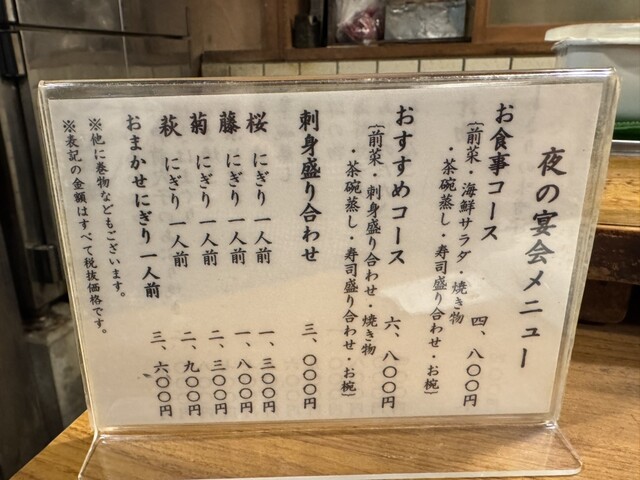 夜の宴会メニュー
お食事コース 四、八〇〇円
{前菜・海鮮サラダ・焼き物
・茶碗蒸し・寿司盛り合わせ・お椀}
おすすめコース 六、八〇〇円
{前菜・刺身盛り合わせ・焼き物
・茶碗蒸し・寿司盛り合わせ・お椀}
刺身盛り合わせ 三、〇〇〇円
桜 にぎり 一人前 一、三〇〇円
藤 にぎり 一人前 一、八〇〇円
菊 にぎり 一人前 二、三〇〇円
萩 にぎり 一人前 二、九〇〇円
おまかせにぎり 一人前 三、六〇〇円
※他に巻物などもございます。
※表記の金額はすべて税抜価格です。